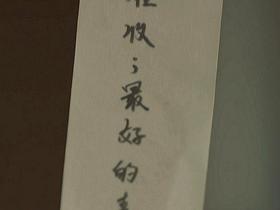 收；最好的